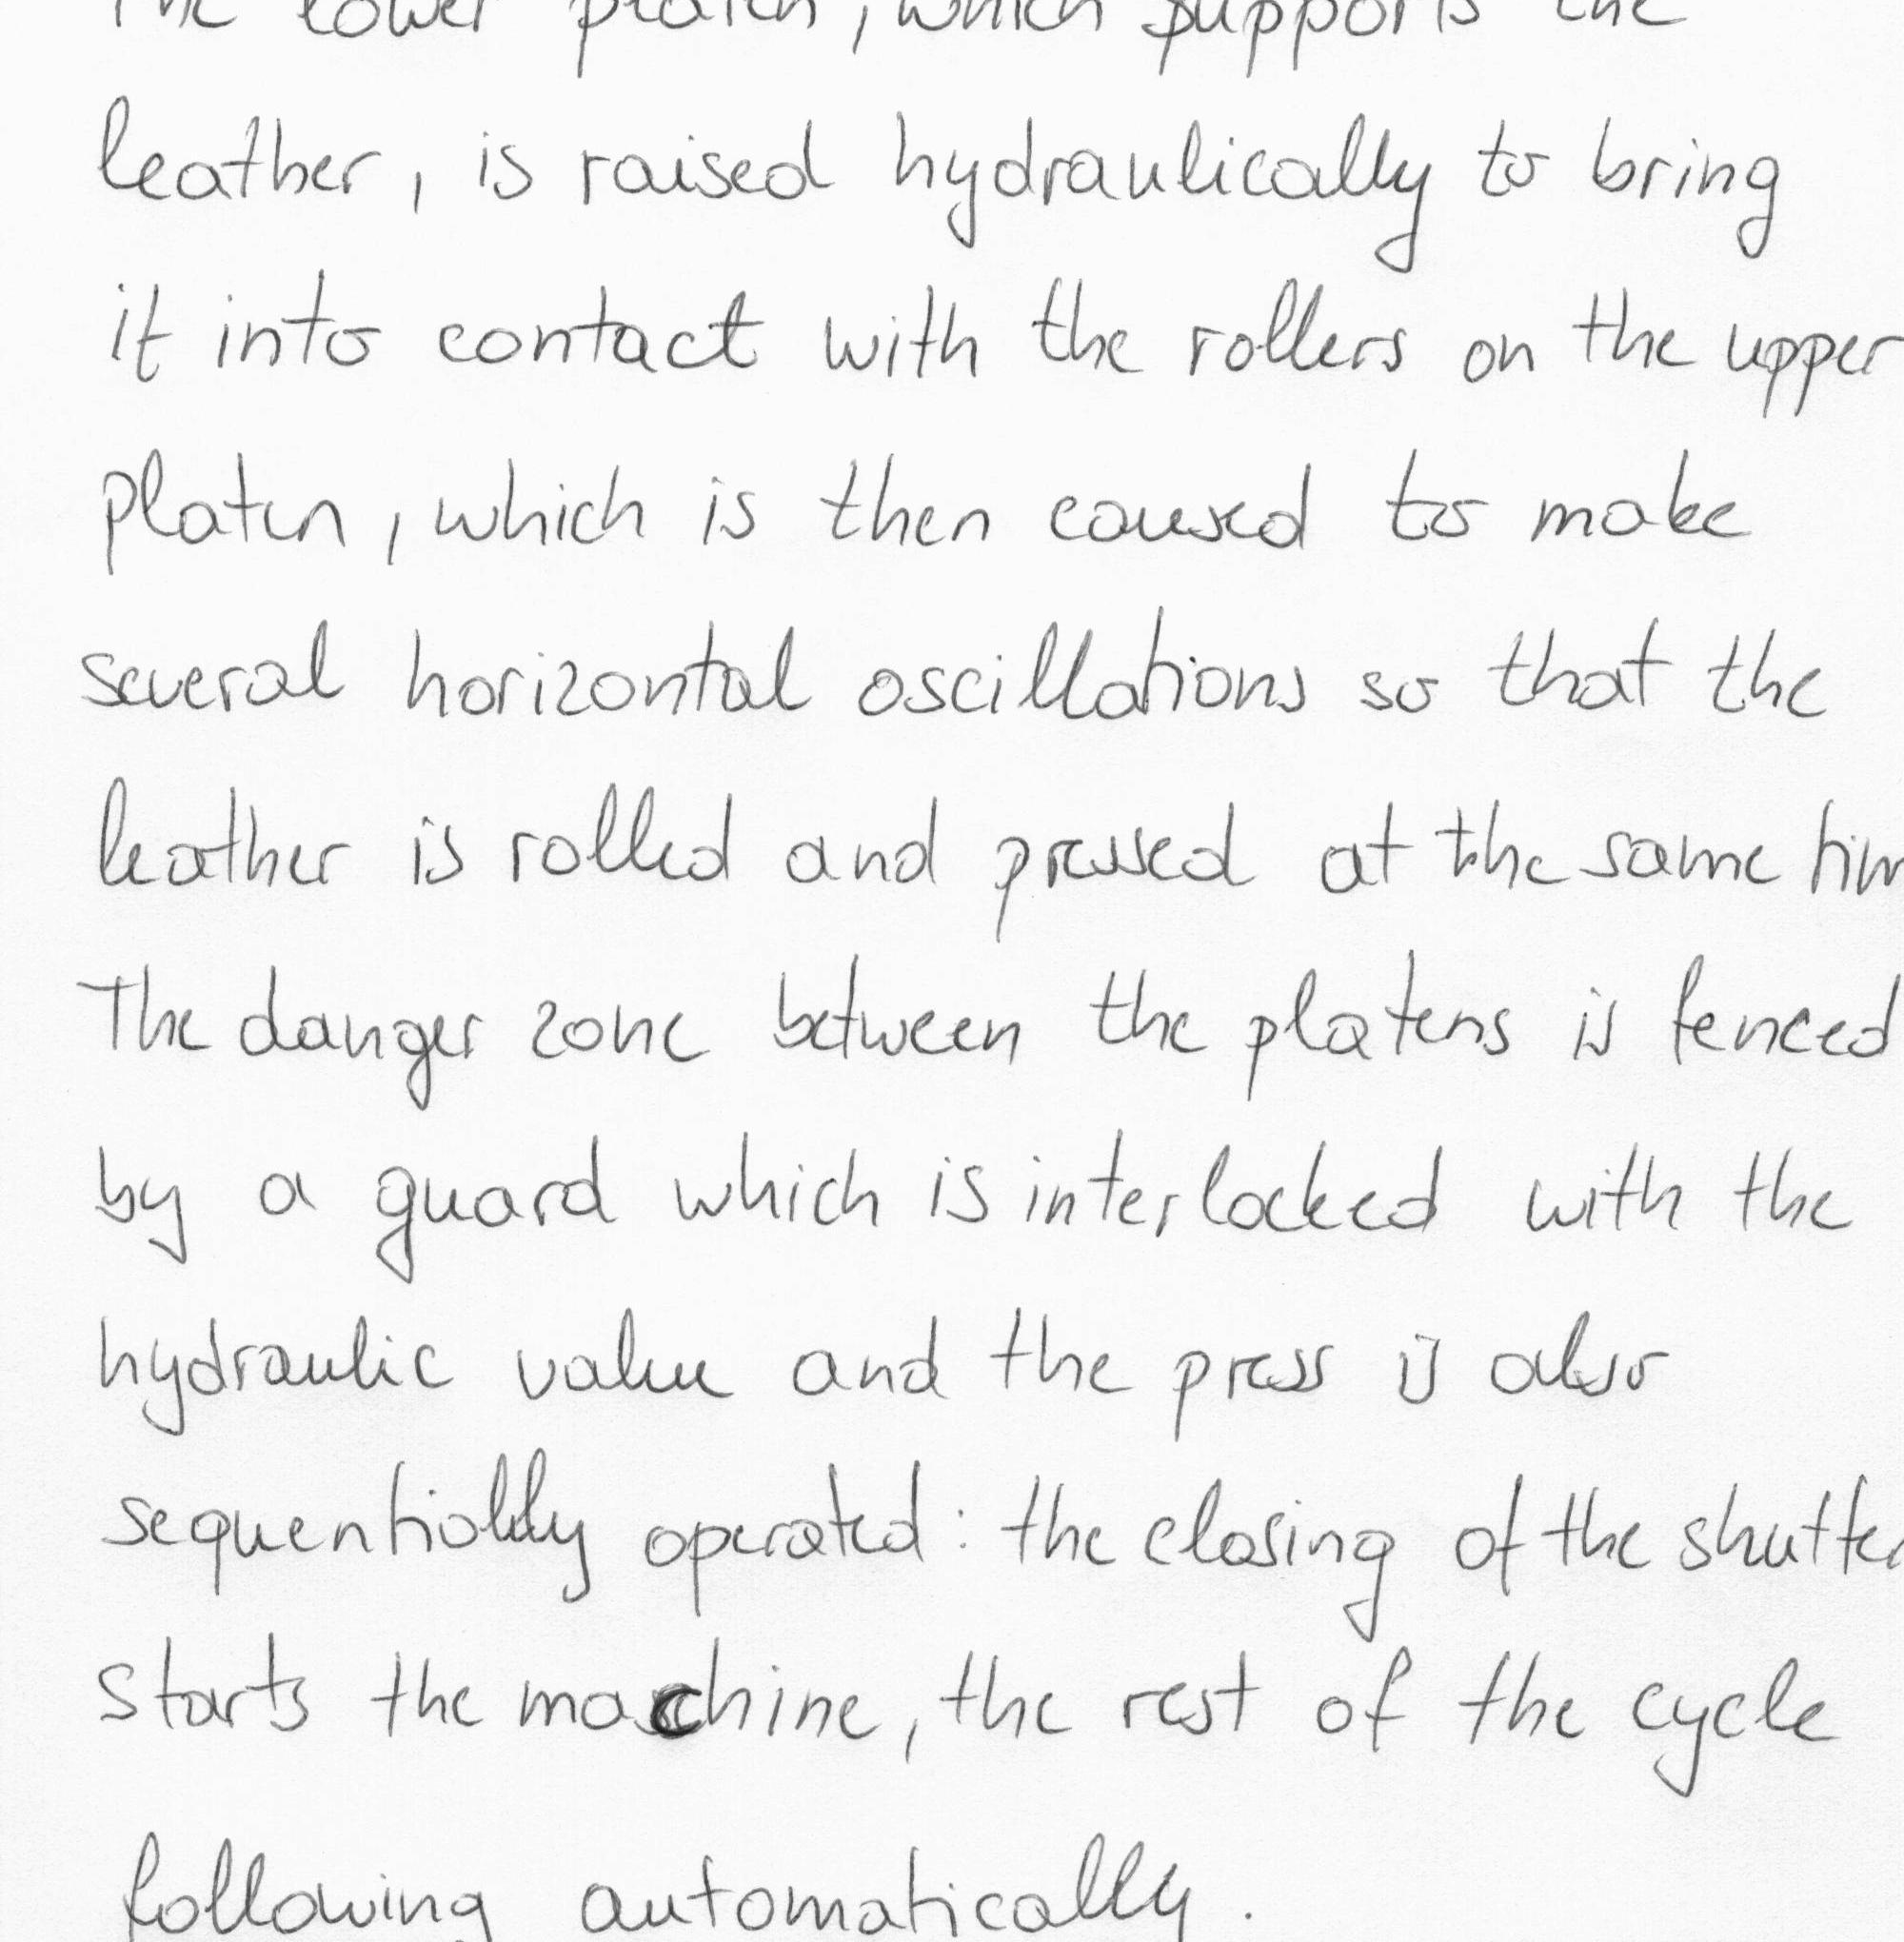 The lower platen, which supports the
leather, is raised hydraulically to bring
it into contact with the rollers on the upper
platen, which is then caused to make
several horizontal oscillations so that the
leather is rolled and pressed at the same tim
The danger zone between the platens is fenced
by a guard which is interlocked with the
hydraulic value and the press is also
sequentially operated: the closing of the shutter
starts the machine, the rest of the cycle
following automatically.